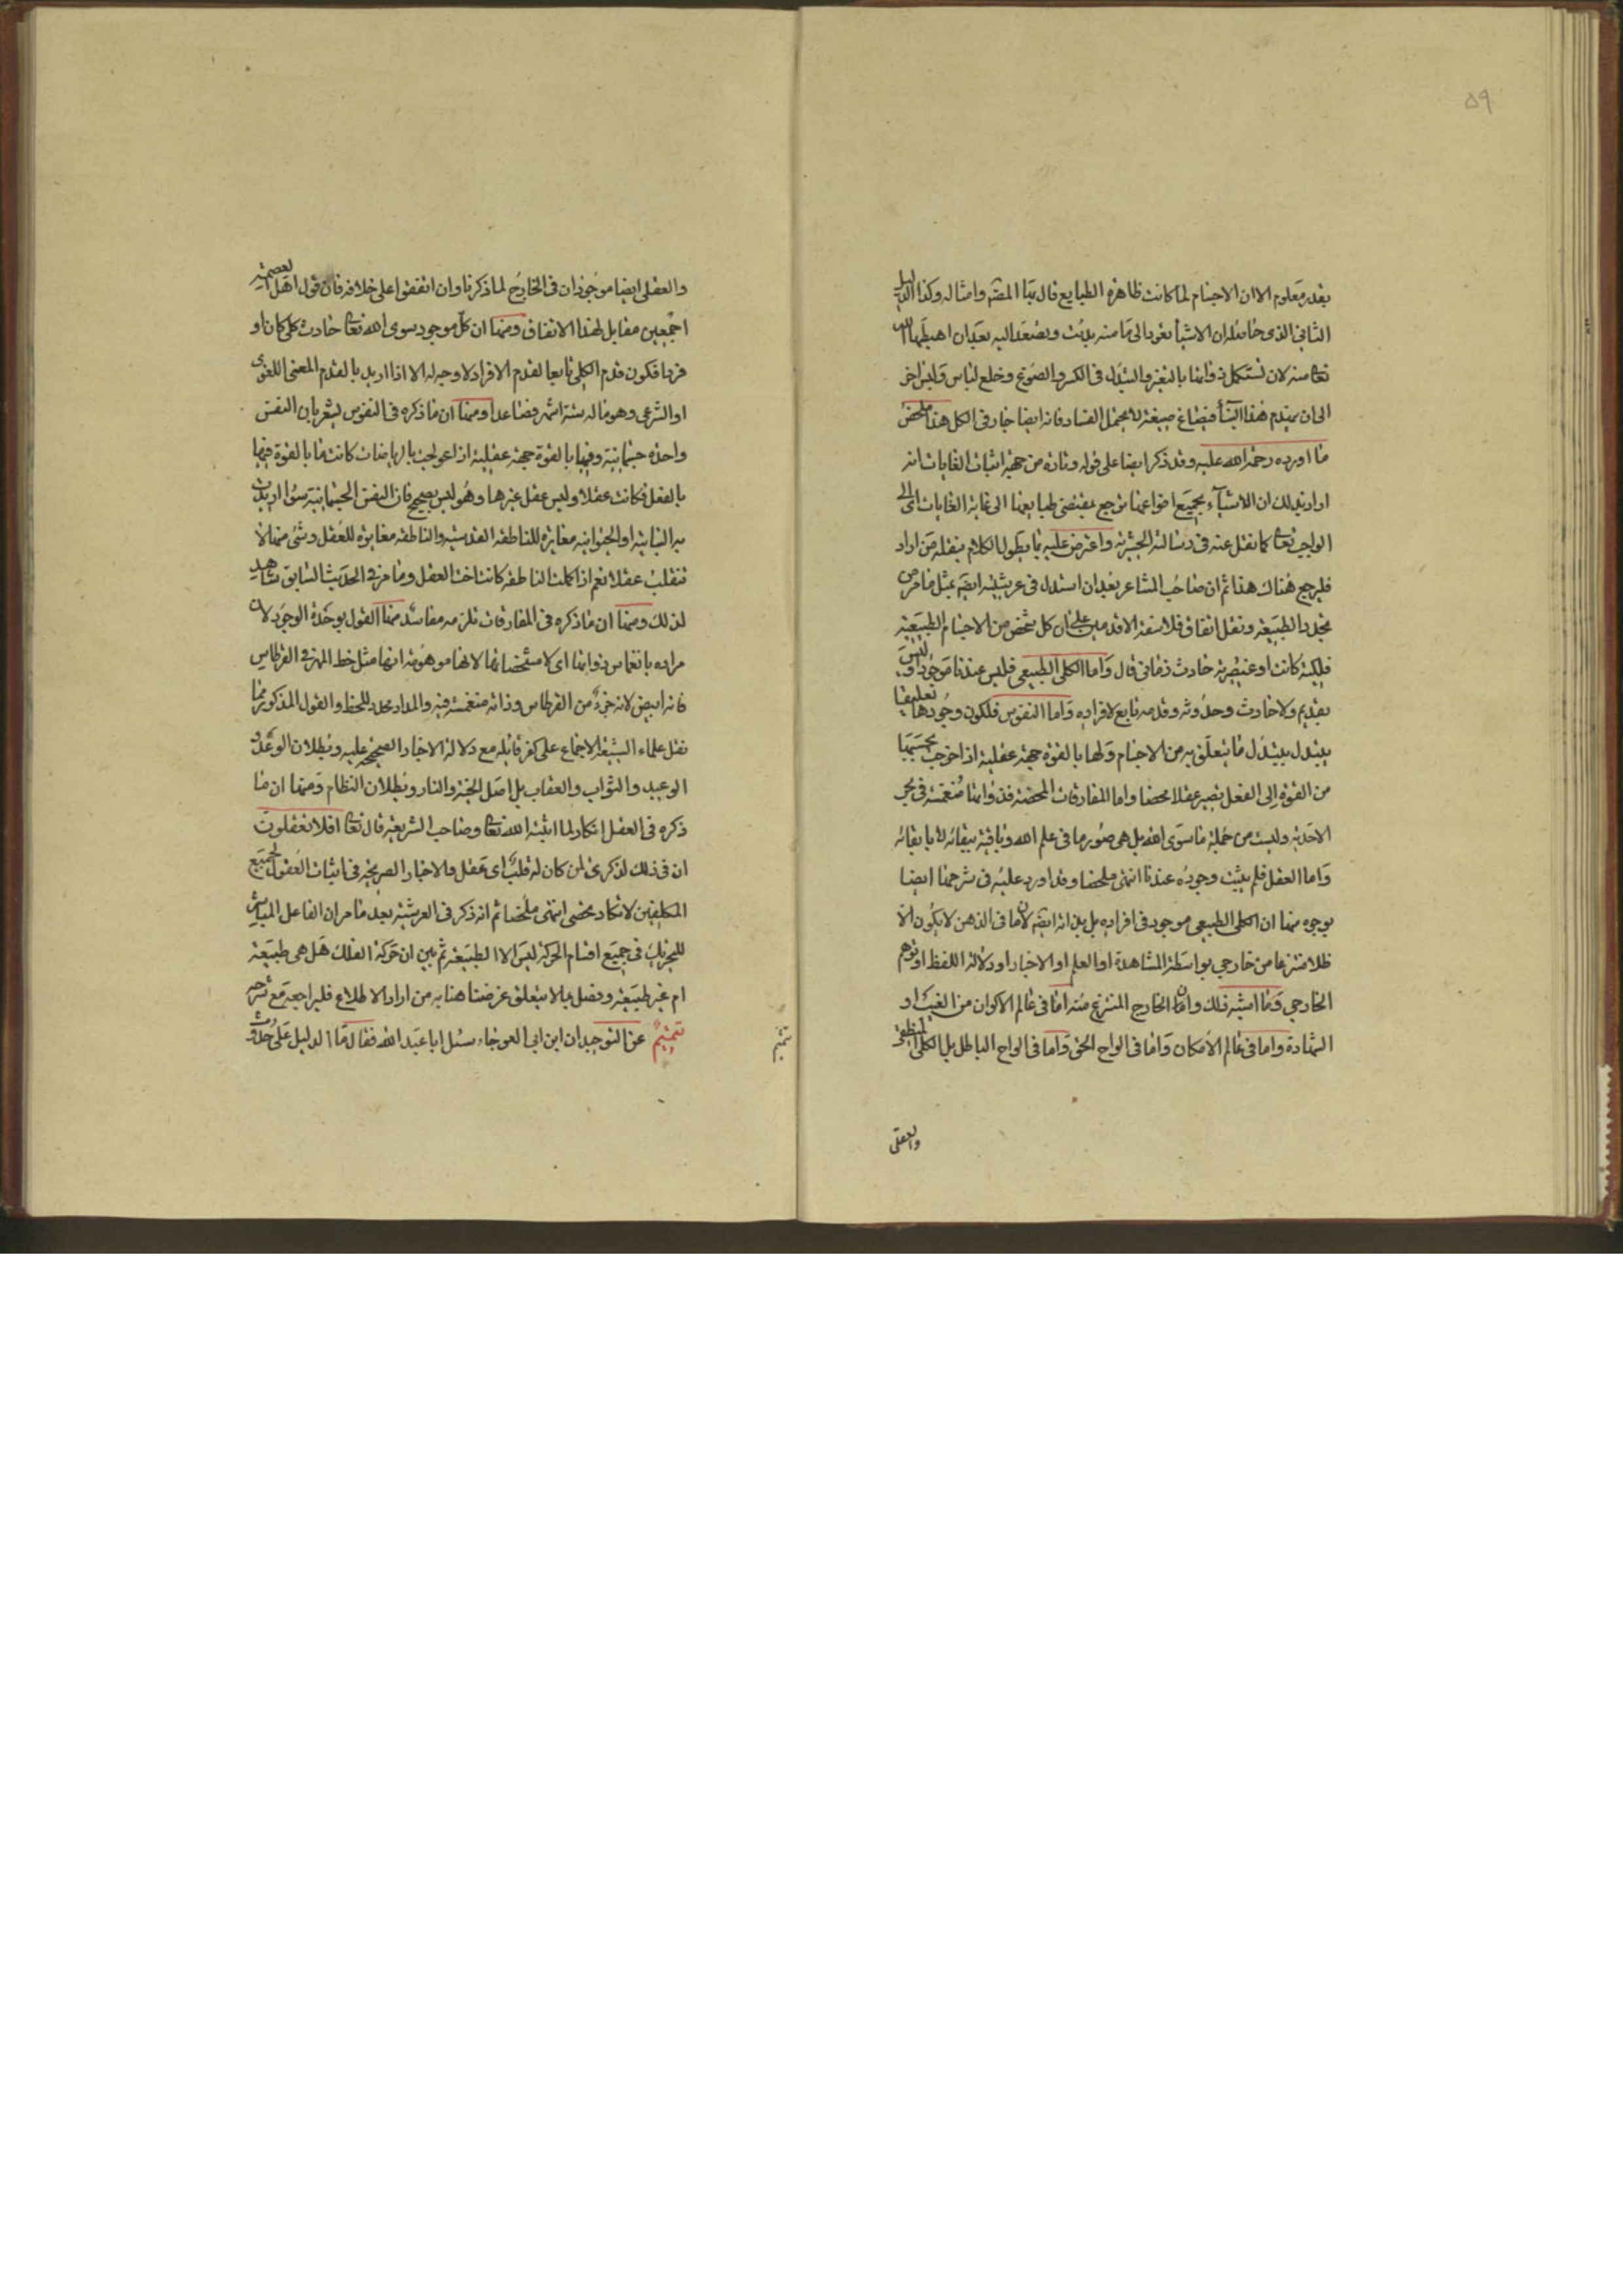 ٥٩
بقدر معلوم الا ان الاجسام لما كانت ظاهرة الطبايع قال بها المص وامثاله وكذا الدليل
الثاني الذي حاصله ان الاشياء تعود الى ما منه بدئت وتصعد اليه بعد ان اهبطها الله
تعا منه لان تستكمل ذواتها بالتغير والتبدل في الكسر والصوغ وخلع لباس ولبس اخر
الى ان ينهدم هذا البناء فيصاغ صيغة لا يحتمل الفساد فانه ايضا جار في الكل هذا ملخص
ما اورده رحمة الله عليه وقد ذكر ايضا على قوله وتارة من جهة اثبات الغايات انه
اراد بذلك ان الاشياء بجميع اوضاعها ترجع بمقتضى طبايعها الى غاية الغايات اى الى
الواجب تعا كما نقل عنه في رسالته الحشرية واعترض عليه بما يطول الكلام بنقله من اراد
فليرجع هناك هذا ثم ان صاحب المشاعر بعد ان استدل في عرشيته ايضه بمثل ما مر من
تجدد الطبيعة ونقل اتفاق فلاسفة الاقدمين على ان كل شخص من الاجسام الطبيعية
فلكية كانت او عنصرية حادث زماني قال واما الكلي الطبيعي فليس عندنا موجودا وليس
بقديم ولا حادث وحدوثه وقدمه تابع لافراده واما النفوس فلكون وجودها تعليقيا
يتبدل بتبدل ما يتعلق به من الاجسام ولها بالقوة جهة عقلية اذا خرجت بحسبها
من القوة الى الفعل تصير عقلا محضا واما المفارقات المحضة فذواتها منغمسة في بحر
الاحدية وليست من جملة ما سوى الله بل هي صور ما في علم الله وباقية ببقائه لا بابقائه
واما العقل فلم يثبت وجوده عندنا انتهى ملخصا وقد اورد عليه في شرحها ايضا
بوجوه منها ان الكلي الطبيعي موجود في افراده بل بذاته ايضه لان ما في الذهن لا يكون الا
ظلا منتزعا من خارجي بواسطة المشاهدة او العلم او الاخبار او دلالة اللفظ او توهم
الخارجي وما اشبه ذلك وان الخارج المنتزع منه اما في عالم الاكوان من الغيب او
الشهادة واما في عالم الامكان واما في الواح الحق واما في الواح الباطل بل الكلي المنطقي
والعقلى
والعقلي ايضا موجودان في الخارج لما ذكرنا وان اتفقوا على خلافه فان قول اهل العصمة
اجمعين مقابل لهذا الاتفاق ومنها ان كل موجود سوى الله تعا حادث كلي كان او
فردا فكون قدم الكلي تابعا لقدم الافراد لا وجه له الا اذا اريد بالقدم المعنى اللغوي
او الشرعي وهو ما له ستة اشهر فصاعدا ومنها ان ما ذكره في النفوس يشعر بان النفس
واحدة جسمانية وفيها بالقوة جهة عقلية اذا عولجت بالرياضات كانت ما بالقوة فيها
بالفعل فكانت عقلا وليس عقل غيرها وهو ليس بصحيح فان النفس الجسمانية سواء اريدت
به النباتية او الحيوانية مغايرة للناطقة القدسية والناطقة مغايرة للعقل وشيء منها لا
تنقلب عقلا نعم اذا كملت الناطقة كانت اخت العقل وما مر في الحديث السابق شاهد
لذلك ومنها ان ما ذكره في المفارقات تلزمه مفاسد منها القول بوحدة الوجود لان
مراده بانغماس ذواتها اى لا مشخصاتها لانها موهومة انها مثل خط المهر في القرطاس
فانه ابيض لانه جزء من القرطاس وذاته منغمسة فيه والمداد محدد للخط والقول المذكور مما
نقل علماء الشيعة الاجماع على كفر قائله مع دلالة الاخبار الصحيحة عليه وبطلان الوعد و
الوعيد والثواب والعقاب بل اصل الجنة والنار وبطلان النظام ومنها ان ما
ذكره في العقل انكار لما اثبته الله تعا وصاحب الشريعة قال تعا افلا تعقلون
ان في ذلك لذكرى لمن كان له قلب اى عقل والاخبار الصريحة في اثبات العقول لجميع
المكلفين لا تكاد تحصى انتهى ملخصا ثم انه ذكر في العرشية بعد ما مر ان الفاعل المباشر
للتحريك في جميع اقسام الحركة ليس الا الطبيعة ثم بين ان حركة الفلك هل هي طبيعية
ام غير طبيعية وفصل بما لا يتعلق غرضنا هنا به من اراد الاطلاع فليراجعه مع شرحه
تتميم عن التوحيد ان ابن ابي العوجاء سئل ابا عبد الله فقال ما الدليل على حدوث
تتميم